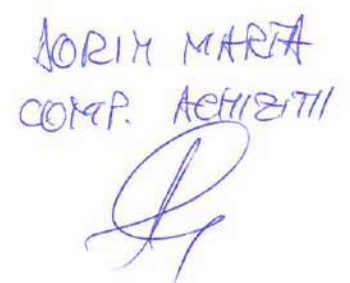 DORIN MARTA
COMP. ACHIZITII